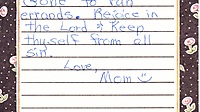 Gone to ran
errands. Rejoice in
the Lord & Keep
thyself from all
sin.
Love,
Mom